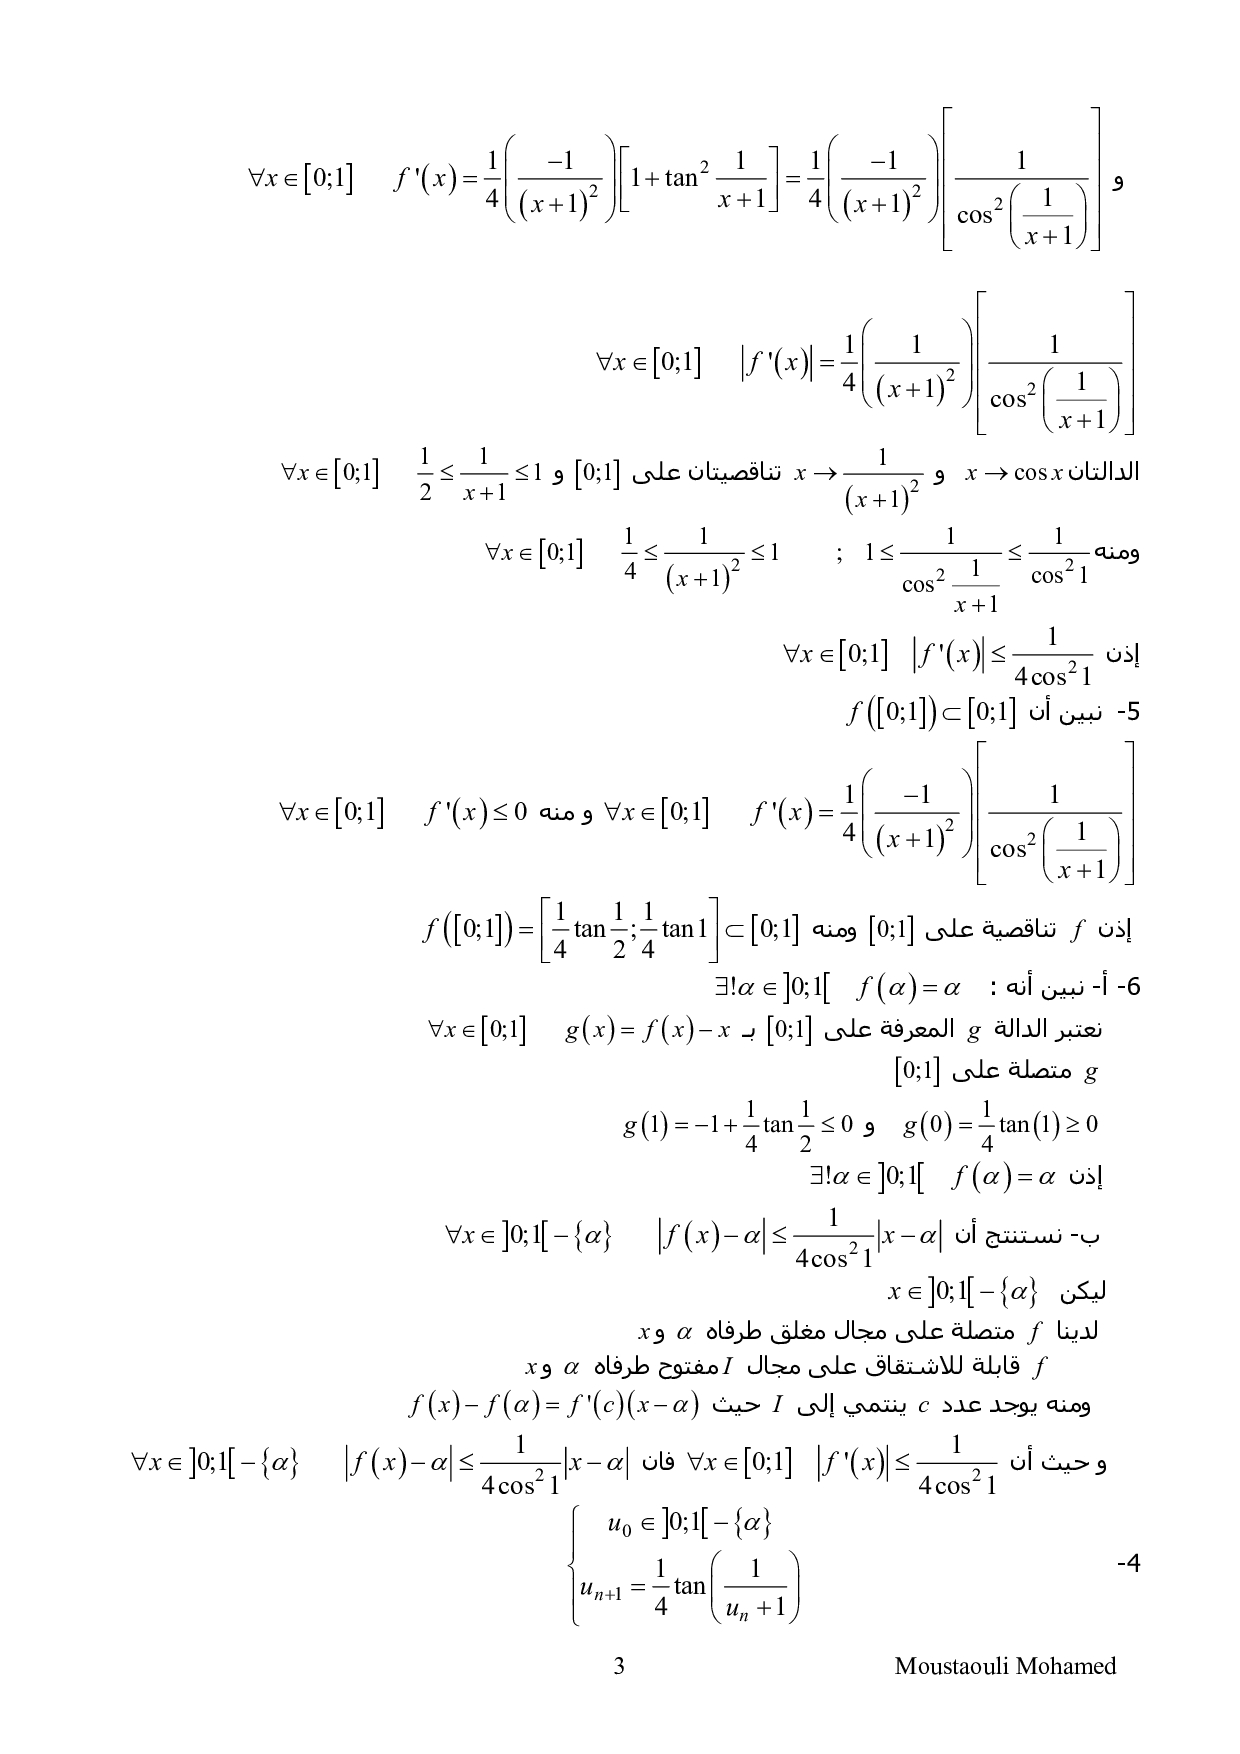 و $\forall x \in [0;1] \quad f'(x) = \frac{1}{4}\left(\frac{-1}{(x+1)^2}\right)\left[1+\tan^2\frac{1}{x+1}\right] = \frac{1}{4}\left(\frac{-1}{(x+1)^2}\right)\left[\frac{1}{\cos^2\left(\frac{1}{x+1}\right)}\right]$
$\forall x \in [0;1] \quad |f'(x)| = \frac{1}{4}\left(\frac{1}{(x+1)^2}\right)\left[\frac{1}{\cos^2\left(\frac{1}{x+1}\right)}\right]$
الدالتان $x \to \cos x$ و $x \to \frac{1}{(x+1)^2}$ تناقصيتان على $[0;1]$ و $\forall x \in [0;1] \quad \frac{1}{2} \le \frac{1}{x+1} \le 1$
ومنه $\forall x \in [0;1] \quad \frac{1}{4} \le \frac{1}{(x+1)^2} \le 1 \quad ; \quad 1 \le \frac{1}{\cos^2\frac{1}{x+1}} \le \frac{1}{\cos^2 1}$
إذن $\forall x \in [0;1] \quad |f'(x)| \le \frac{1}{4\cos^2 1}$
5- نبين أن $f([0;1]) \subset [0;1]$
$\forall x \in [0;1] \quad f'(x) = \frac{1}{4}\left(\frac{-1}{(x+1)^2}\right)\left[\frac{1}{\cos^2\left(\frac{1}{x+1}\right)}\right]$ و منه $\forall x \in [0;1] \quad f'(x) \le 0$
إذن $f$ تناقصية على $[0;1]$ ومنه $f([0;1]) = \left[\frac{1}{4}\tan\frac{1}{2};\frac{1}{4}\tan 1\right] \subset [0;1]$
6- أ- نبين أنه : $\exists!\alpha \in ]0;1[ \quad f(\alpha) = \alpha$
نعتبر الدالة $g$ المعرفة على $[0;1]$ بـ $\forall x \in [0;1] \quad g(x) = f(x) - x$
$g$ متصلة على $[0;1]$
$g(0) = \frac{1}{4}\tan(1) \ge 0$ و $g(1) = -1+\frac{1}{4}\tan\frac{1}{2} \le 0$
إذن $\exists!\alpha \in ]0;1[ \quad f(\alpha) = \alpha$
ب- نستنتج أن $\forall x \in ]0;1[ - \{\alpha\} \quad |f(x) - \alpha| \le \frac{1}{4\cos^2 1}|x - \alpha|$
ليكن $x \in ]0;1[ - \{\alpha\}$
لدينا $f$ متصلة على مجال مغلق طرفاه $\alpha$ و $x$
$f$ قابلة للاشتقاق على مجال $I$ مفتوح طرفاه $\alpha$ و $x$
ومنه يوجد عدد $c$ ينتمي إلى $I$ حيث $f(x) - f(\alpha) = f'(c)(x - \alpha)$
و حيث أن $\forall x \in [0;1] \quad |f'(x)| \le \frac{1}{4\cos^2 1}$ فان $\forall x \in ]0;1[ - \{\alpha\} \quad |f(x) - \alpha| \le \frac{1}{4\cos^2 1}|x - \alpha|$
4- $\begin{cases} u_0 \in ]0;1[ - \{\alpha\} \\ u_{n+1} = \frac{1}{4}\tan\left(\frac{1}{u_n+1}\right) \end{cases}$
3 Moustaouli Mohamed